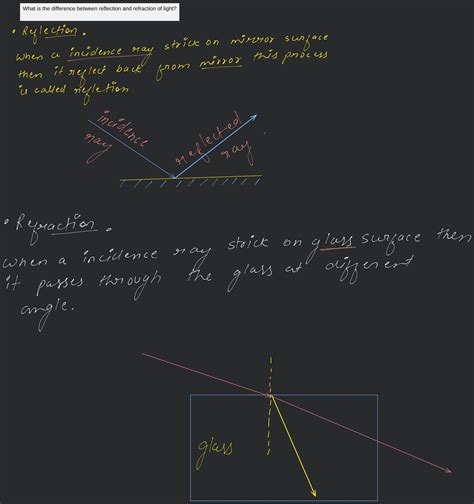 What is the difference between reflection and refraction of light?
• Reflection.
When a incidence ray strick on mirror surface
then it reflect back from mirror this process
is called refletion.
incidence
ray
reflected
ray
• Refraction.
When a incidence ray strick on glass surface then
it passes through the glass at different
angle.
glass